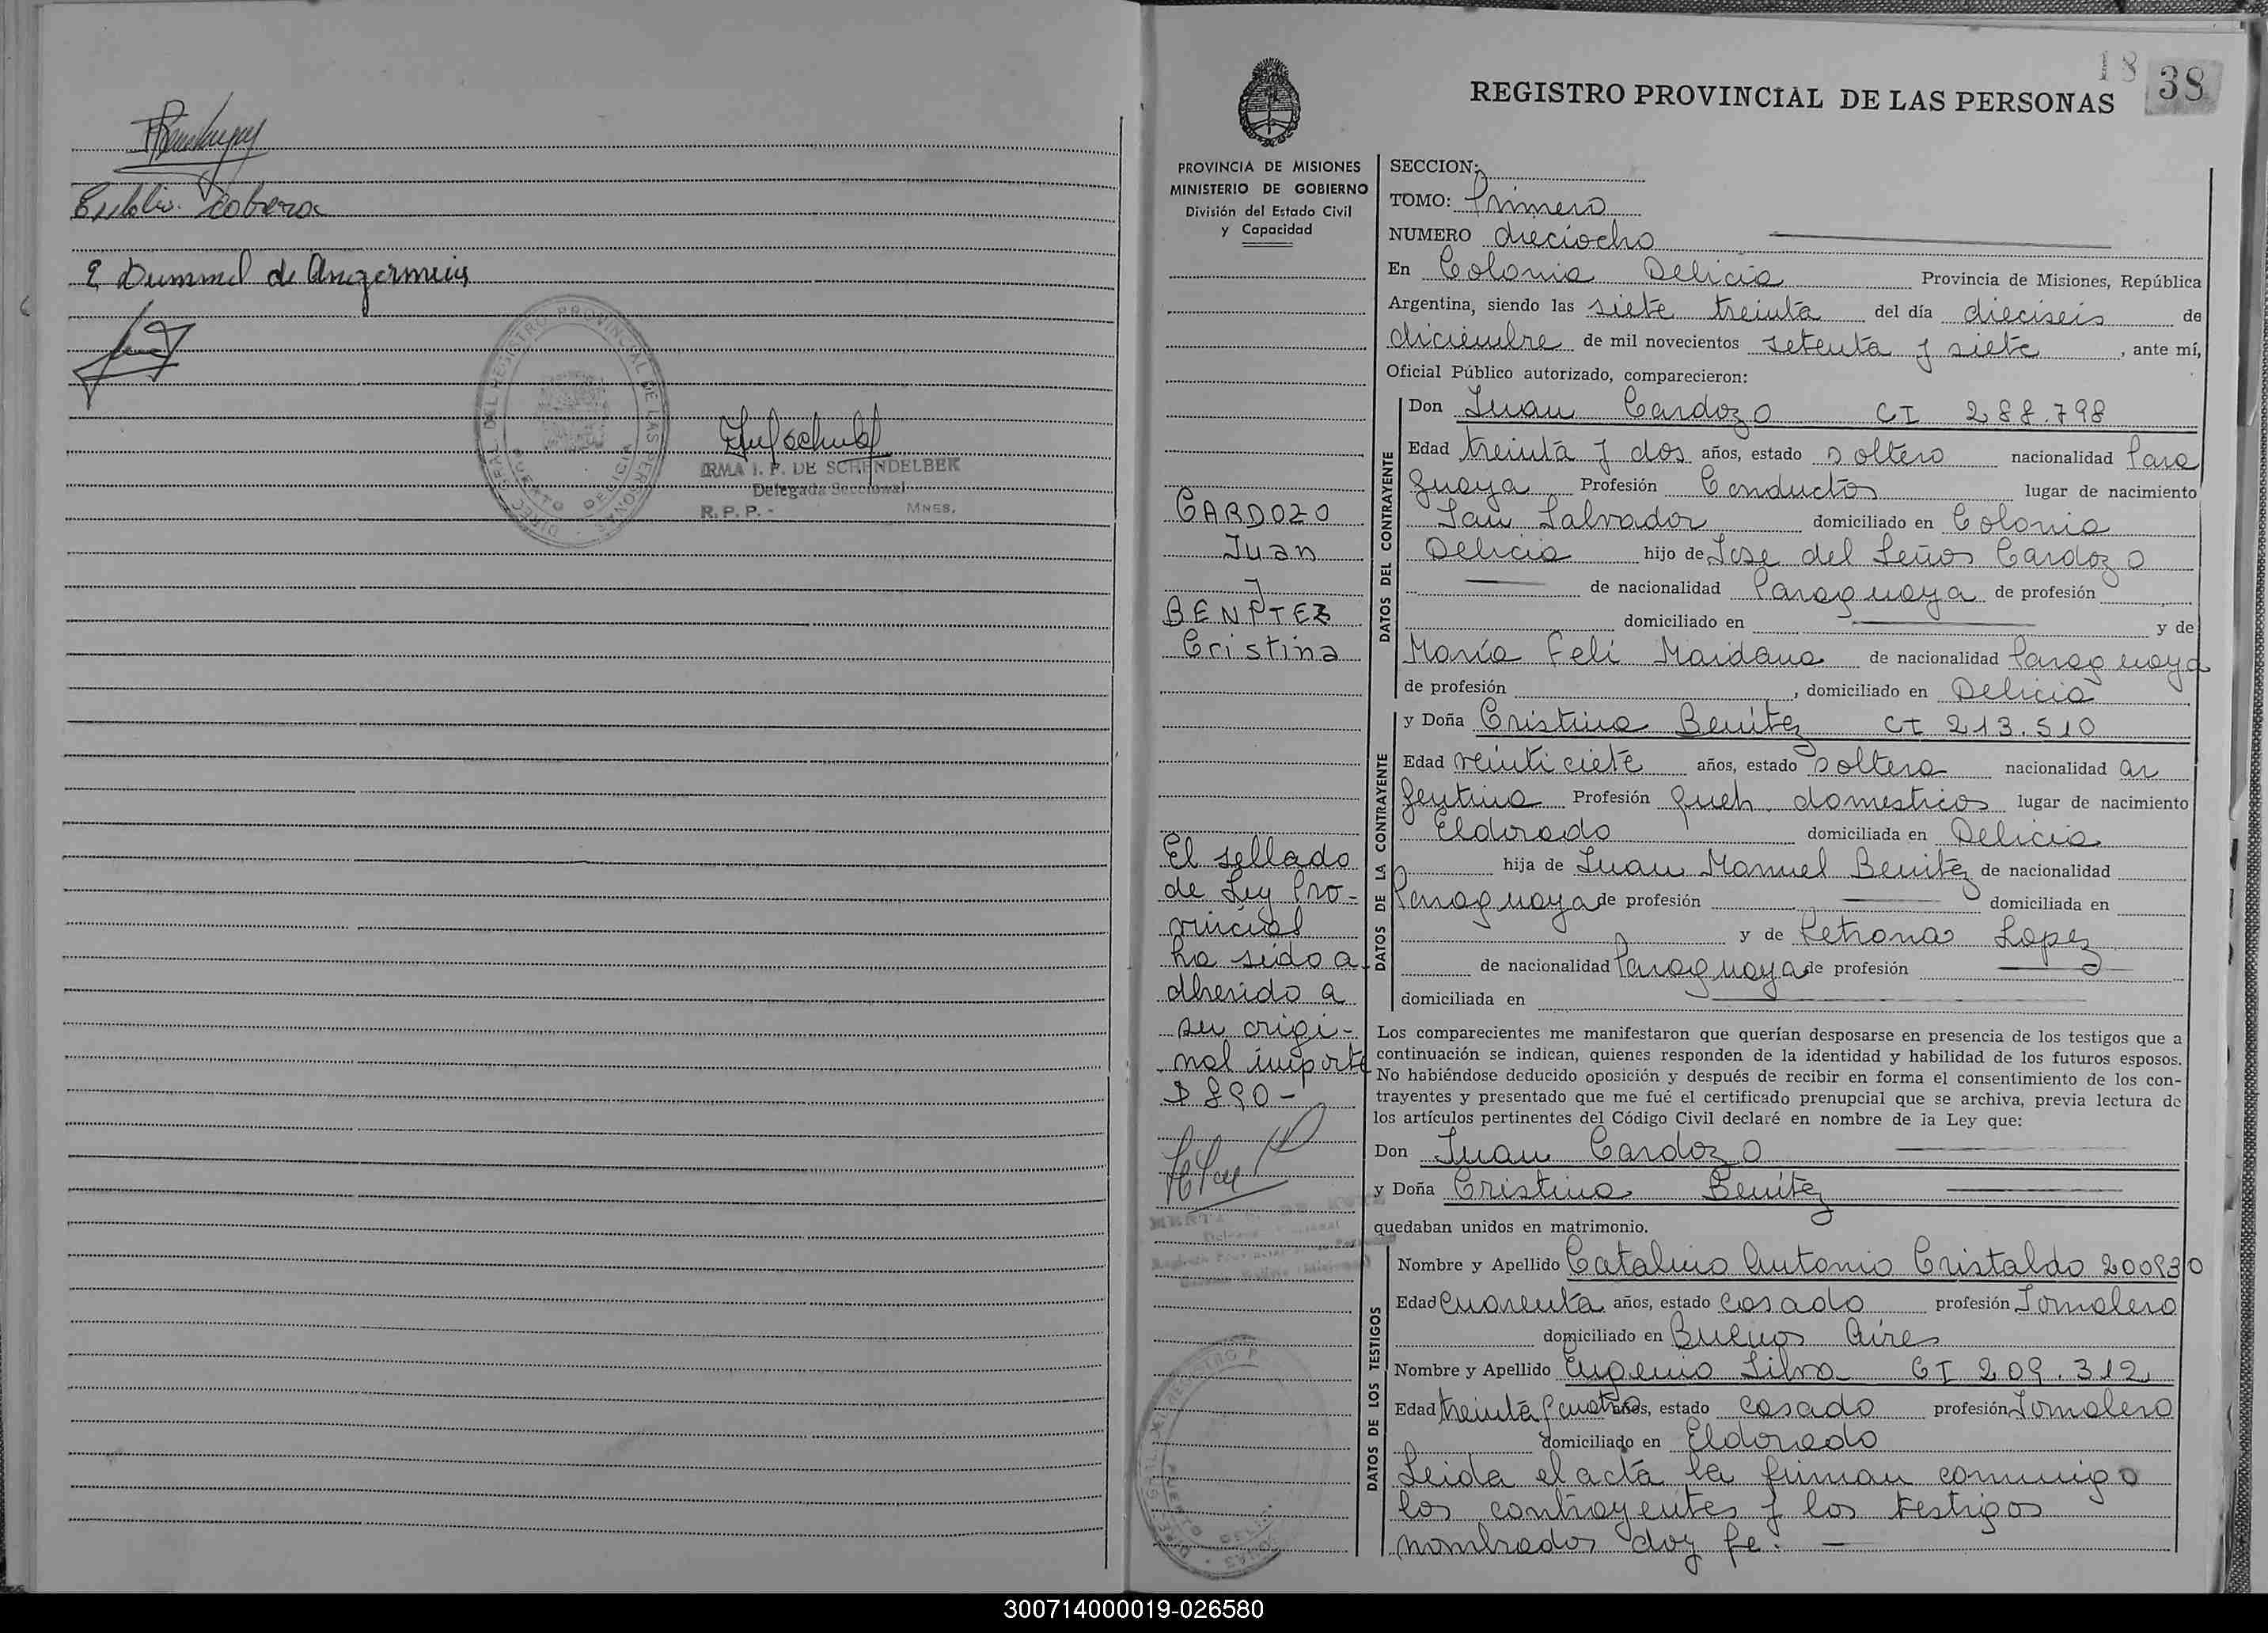 E Dummel de Angermeier
DIREC. GRAL DEL REGISTRO PROVINCIAL DE LAS PERSONAS
PUERTO DELICIA
IRMA I. F. DE SCHENDELBEK
Delegada Seccional
R. P. P. - MNES.
18 38
REGISTRO PROVINCIAL DE LAS PERSONAS
PROVINCIA DE MISIONES
MINISTERIO DE GOBIERNO
División del Estado Civil
y Capacidad
CARDOZO
Juan
y
BENITEZ
Cristina
El sellado
de Ley Pro-
vincial
ha sido a
dherido a
su origi-
nal importe
$ 890-
SECCION:
TOMO: Primero
NUMERO dieciocho
En Colonia Delicia Provincia de Misiones, República
Argentina, siendo las siete treinta del día dieciseis de
diciembre de mil novecientos setenta y siete, ante mí,
Oficial Público autorizado, comparecieron:
DATOS DEL CONTRAYENTE
Don Juan Cardozo CI 288.798
Edad treinta y dos años, estado soltero nacionalidad Para
guaya Profesión Conductor lugar de nacimiento
San Salvador domiciliado en Colonia
Delicia hijo de Jose del Señor Cardozo
de nacionalidad Paraguaya de profesión
domiciliado en y de
María Feli Maidana de nacionalidad Paraguaya
de profesión , domiciliado en Delicia
DATOS DE LA CONTRAYENTE
y Doña Cristina Benítez CI 213.510
Edad veinticiete años, estado soltera nacionalidad ar
gentina Profesión queh. domesticos lugar de nacimiento
Eldorado domiciliada en Delicia
hija de Juan Manuel Benitez de nacionalidad
Paraguaya de profesión domiciliada en
y de Petrona Lopez
de nacionalidad Paraguaya de profesión
domiciliada en
Los comparecientes me manifestaron que querían desposarse en presencia de los testigos que a
continuación se indican, quienes responden de la identidad y habilidad de los futuros esposos.
No habiéndose deducido oposición y después de recibir en forma el consentimiento de los con-
trayentes y presentado que me fué el certificado prenupcial que se archiva, previa lectura de
los artículos pertinentes del Código Civil declaré en nombre de la Ley que:
Don Juan Cardozo
y Doña Cristina Benítez
quedaban unidos en matrimonio.
DATOS DE LOS TESTIGOS
Nombre y Apellido Catalino Antonio Cristaldo 200930
Edad cuarenta años, estado casado profesión Jornalero
domiciliado en Buenos Aires
Nombre y Apellido Eugenio Silva CI 209.312
Edad treinta y cuatro años, estado casado profesión Jornalero
domiciliado en Eldorado
Leida el acta la firman conmigo
los contrayentes y los testigos
nombrados doy fe.
300714000019-026580